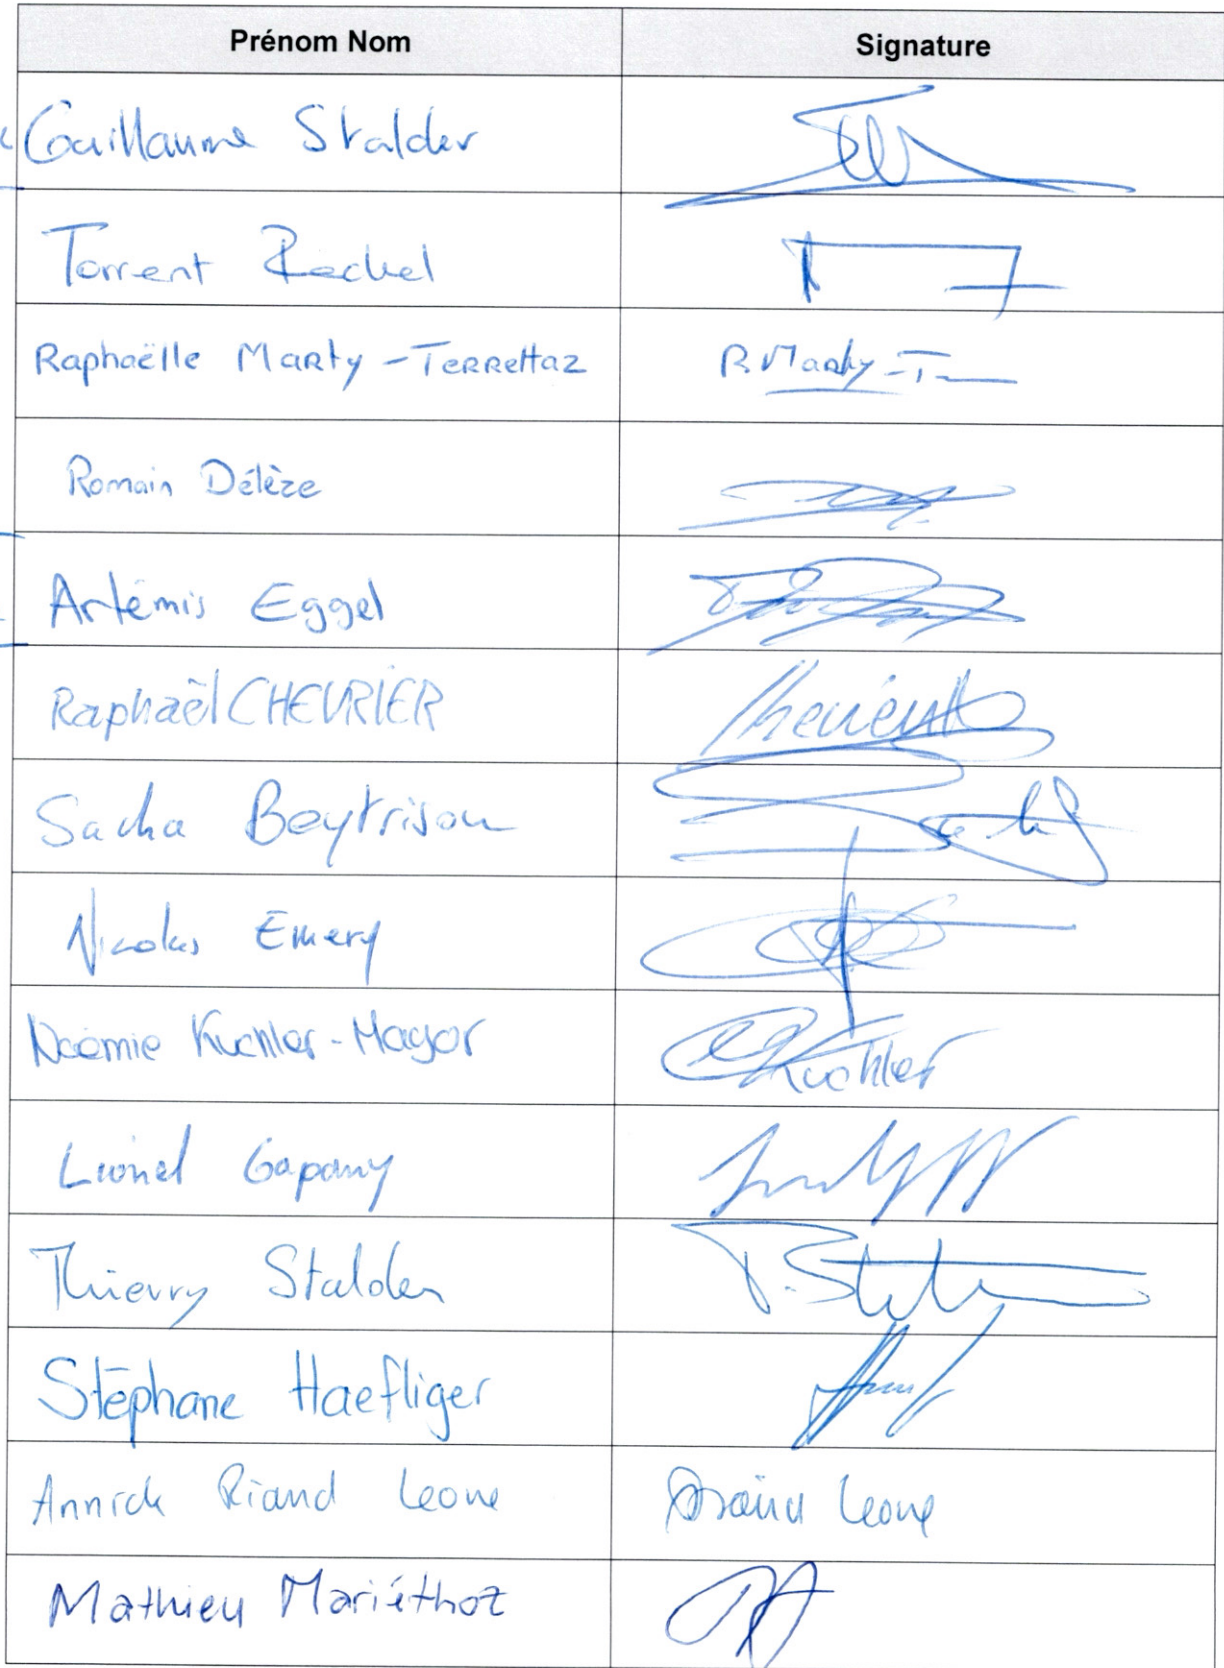 Prénom Nom Signature
Guillaume Stalder
Torrent Rachel
Raphaëlle Marty-Terrettaz R. Marty-T
Romain Délèze
Artémis Eggel
Raphaël CHEVRIER
Sacha Beytrison
Nicolas Emery
Noémie Kuchler-Mayor Kuchler
Lionel Gapany
Thierry Stalder T. Stalder
Stéphane Haefliger
Annick Riand Leone Leone
Mathieu Mariéthoz